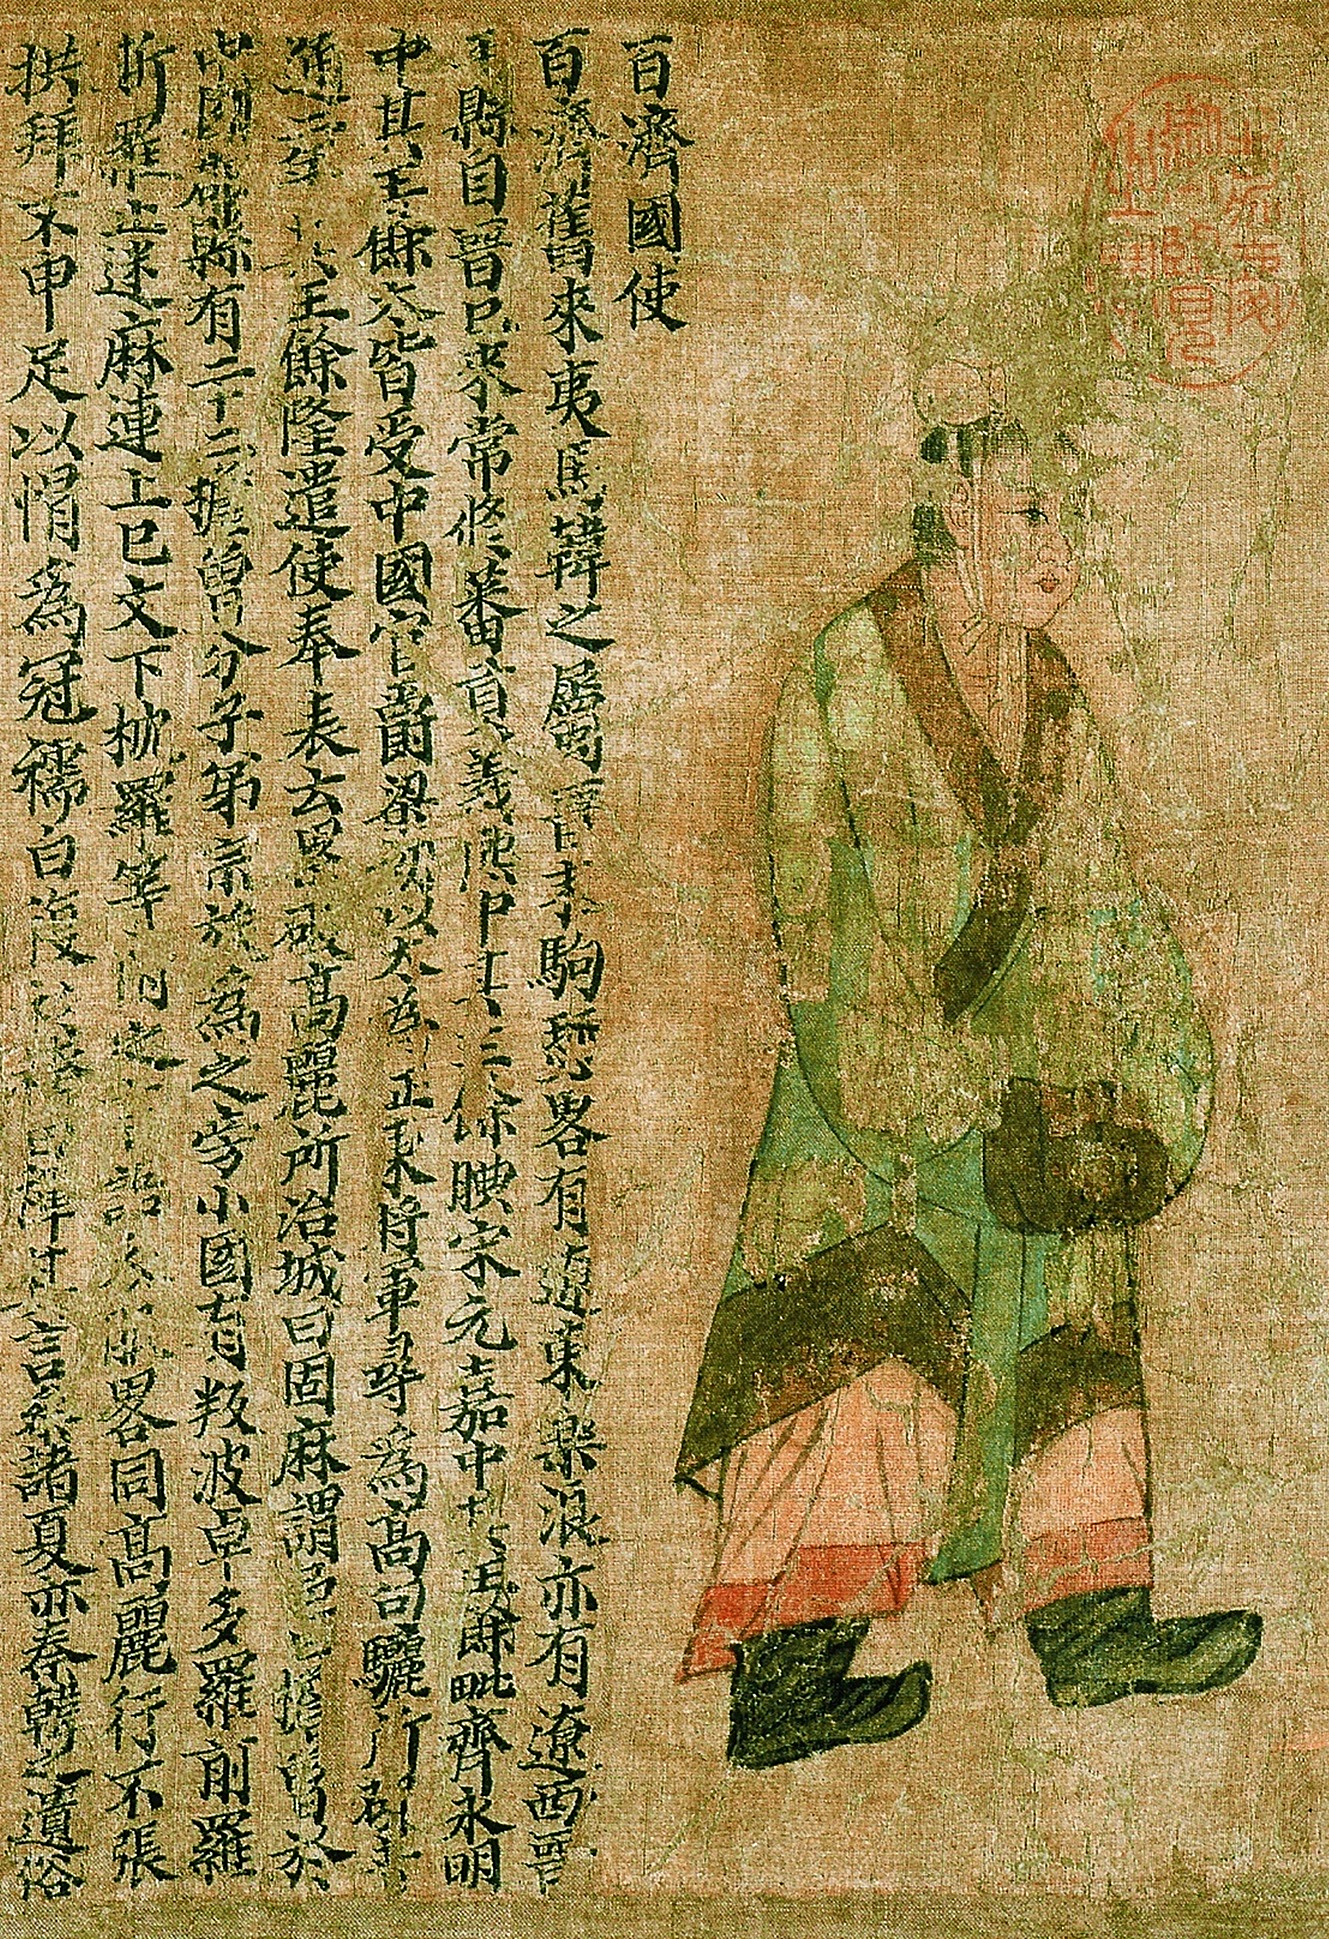 百濟國使
百濟舊來夷馬韓之屬晉末駒驪略有遼東樂浪亦有遼西晉
縣自晉已來常修蕃貢義熙中其王餘腆宋元嘉中其王餘毗齊永明
中其王餘太皆受中國官爵梁初以太為征東將軍尋為高句驪所破
通二年其王餘隆遣使奉表云累破高麗所治城曰固麻謂邑曰檐魯於
中國郡縣有二十二檐魯分子弟宗族為之旁小國有叛波卓多羅前羅
斯羅止迷麻連上巳文下枕羅等附之言語衣服略同高麗行不張
拱拜不申足以帽為冠襦曰複衫袴曰褌其言參諸夏亦秦韓之遺俗